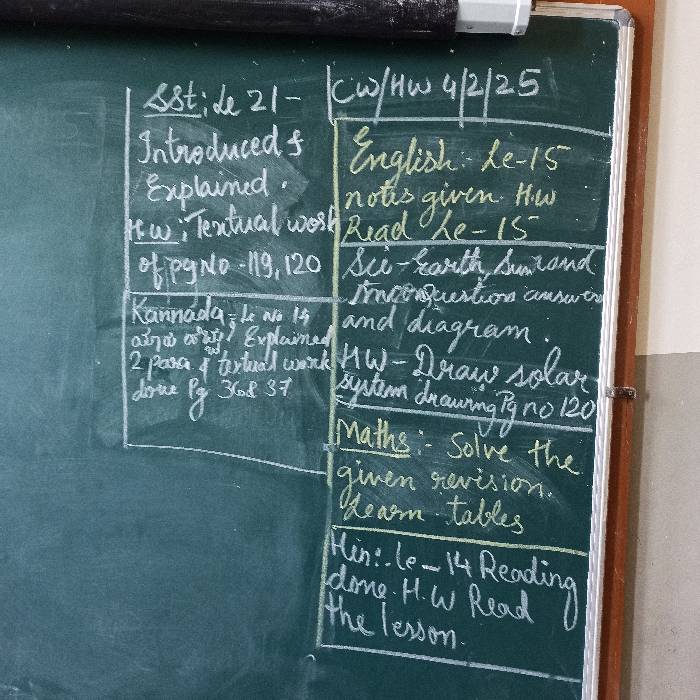 SSt: Le 21-
Introduced &
Explained.
H.W: Textual work
of pg No - 119, 120
Kannada:- Le no 14
Explained
2 para & textual work
done Pg 36 & 37
CW/HW 4/2/25
English:- Le-15
notes given H.W
Read Le-15
Sci-Earth, Sun and
Moon Question answers
and diagram.
HW- Draw solar
system drawing Pg no 120
Maths:- Solve the
given revision.
Learn tables
Hin:- Le-14 Reading
done. H.W Read
the lesson.